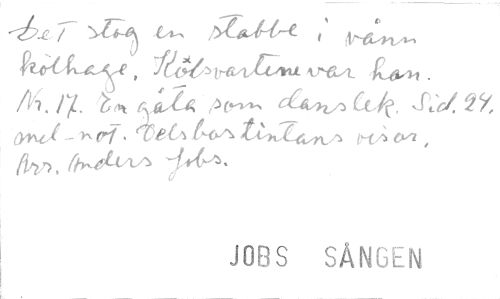 Det stog en stabbe i vånn
kölhage. Kölsvartene var han.
Nr. 17. En gåta som danslek. Sid. 24.
mel-not. Delsbostintans visor.
Arr. Anders Jobs.
JOBS SÅNGEN